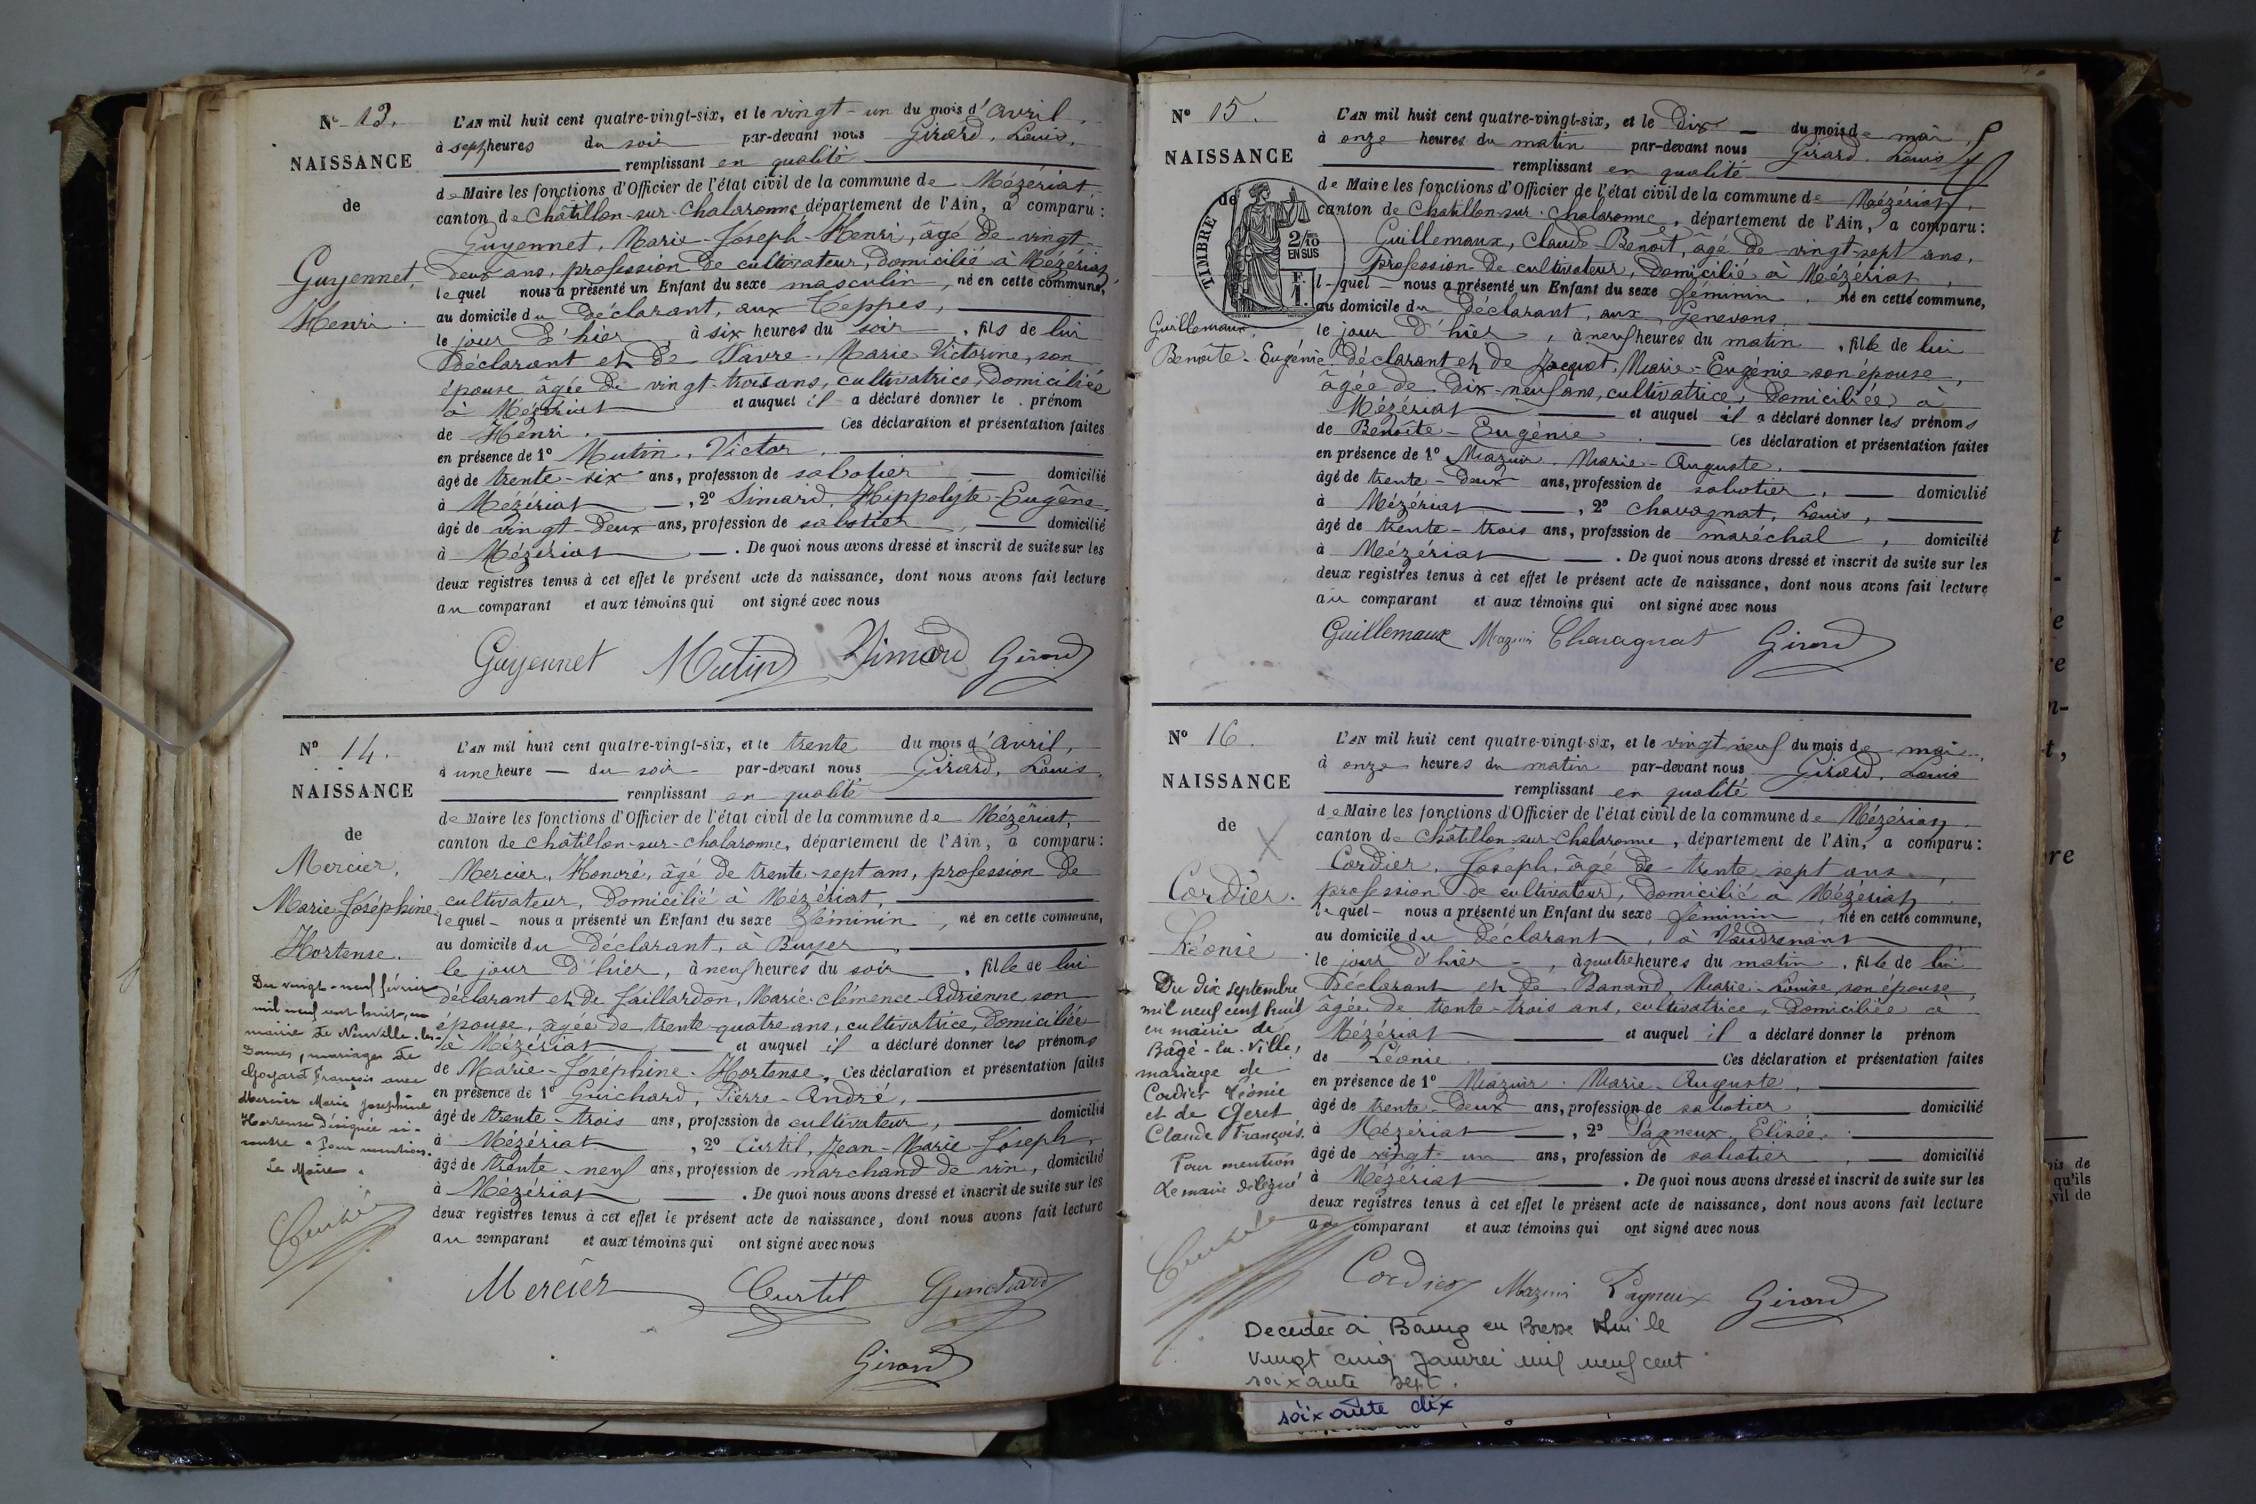 N° 13.
NAISSANCE
de
Guyennet,
Henri.
L'AN mil huit cent quatre-vingt-six, et le vingt-un du mois d'avril,
à sept heures du soir par-devant nous Girard, Louis,
remplissant en qualité
de Maire les fonctions d'Officier de l'état civil de la commune de Mézériat,
canton de Châtillon-sur-Chalaronne, département de l'Ain, a comparu :
Guyennet, Marie-Joseph-Henri, âgé de vingt-
deux ans, profession de cultivateur, domicilié à Mézériat
lequel nous a présenté un Enfant du sexe masculin, né en cette commune,
au domicile du déclarant, aux Teppes,
le jour d'hier, à six heures du soir, fils de lui
déclarant et de Favre, Marie Victorine, son
épouse âgée de vingt-trois ans, cultivatrice, domiciliée
à Mézériat et auquel il a déclaré donner le prénom
de Henri. Ces déclaration et présentation faites
en présence de 1° Mutin, Victor,
âgé de trente-six ans, profession de sabotier domicilié
à Mézériat, 2° Simard, Hippolyte-Eugène,
âgé de vingt-deux ans, profession de sabotier, domicilié
à Mézériat. De quoi nous avons dressé et inscrit de suite sur les
deux registres tenus à cet effet le présent acte de naissance, dont nous avons fait lecture
au comparant et aux témoins qui ont signé avec nous
Guyennet Mutin Simard Girard
N° 14.
NAISSANCE
de
Mercier,
Marie Joséphine
Hortense.
Du vingt-neuf février
mil neuf cent huit, en
mairie de Neuville-les-
Dames, mariage de
Goyard François avec
Mercier Marie Joséphine
Hortense désignée ci-
contre. Pour mention.
Le Maire.
L'AN mil huit cent quatre-vingt-six, et le trente du mois d'avril,
à une heure du soir par-devant nous Girard, Louis,
remplissant en qualité
de Maire les fonctions d'Officier de l'état civil de la commune de Mézériat,
canton de Châtillon-sur-Chalaronne, département de l'Ain, a comparu :
Mercier, Honoré, âgé de trente-sept ans, profession de
cultivateur, domicilié à Mézériat,
lequel nous a présenté un Enfant du sexe féminin, né en cette commune,
au domicile du déclarant, à Buyser,
le jour d'hier, à neuf heures du soir, fille de lui
déclarant et de Jaillardon, Marie-Clémence-Adrienne son
épouse, âgée de trente-quatre ans, cultivatrice, domiciliée
à Mézériat et auquel il a déclaré donner les prénoms
de Marie-Joséphine-Hortense, Ces déclaration et présentation faites
en présence de 1° Guichard, Pierre-André,
âgé de trente-trois ans, profession de cultivateur, domicilié
à Mézériat, 2° Curtil, Jean-Marie-Joseph,
âgé de trente-neuf ans, profession de marchand de vin, domicilié
à Mézériat. De quoi nous avons dressé et inscrit de suite sur les
deux registres tenus à cet effet le présent acte de naissance, dont nous avons fait lecture
au comparant et aux témoins qui ont signé avec nous
Mercier Curtil Guichard
Girard
N° 15.
NAISSANCE
de
TIMBRE
2/10
EN SUS
Guillemaux,
Benoîte-Eugénie
L'AN mil huit cent quatre-vingt-six, et le dix du mois de mai,
à onze heures du matin par-devant nous Girard, Louis
remplissant en qualité
de Maire les fonctions d'Officier de l'état civil de la commune de Mézériat,
canton de Châtillon-sur-Chalaronne, département de l'Ain, a comparu :
Guillemaux, Claude-Benoît, âgé de vingt-sept ans,
profession de cultivateur, domicilié à Mézériat,
lequel nous a présenté un Enfant du sexe féminin, né en cette commune,
au domicile du déclarant, aux Genevons,
le jour d'hier, à neuf heures du matin, fille de lui
déclarant et de Jacquet, Marie-Eugénie son épouse,
âgée de dix-neuf ans, cultivatrice, domiciliée à
Mézériat et auquel il a déclaré donner les prénoms
de Benoîte-Eugénie. Ces déclaration et présentation faites
en présence de 1° Mazuir, Marie-Auguste,
âgé de trente-deux ans, profession de sabotier, domicilié
à Mézériat, 2° Chavagnat, Louis,
âgé de trente-trois ans, profession de maréchal, domicilié
à Mézériat. De quoi nous avons dressé et inscrit de suite sur les
deux registres tenus à cet effet le présent acte de naissance, dont nous avons fait lecture
au comparant et aux témoins qui ont signé avec nous
Guillemaux Mazuir Chavagnat Girard
N° 16.
NAISSANCE
de
Cordier.
Léonie
Du dix septembre
mil neuf cent huit
en mairie de
Bâgé-la-Ville,
mariage de
Cordier Léonie
et de Geret
Claude François.
Pour mention
Le maire délégué
L'AN mil huit cent quatre-vingt-six, et le vingt neuf du mois de mai,
à onze heures du matin par-devant nous Girard, Louis
remplissant en qualité
de Maire les fonctions d'Officier de l'état civil de la commune de Mézériat,
canton de Châtillon-sur-Chalaronne, département de l'Ain, a comparu :
Cordier, Joseph, âgé de trente-sept ans,
profession de cultivateur, domicilié à Mézériat,
lequel nous a présenté un Enfant du sexe féminin, né en cette commune,
au domicile du déclarant, à Vaudrenant
le jour d'hier, à quatre heures du matin, fille de lui
déclarant et de Banand, Marie-Louise son épouse,
âgée de trente-trois ans, cultivatrice, domiciliée à
Mézériat et auquel il a déclaré donner le prénom
de Léonie. Ces déclaration et présentation faites
en présence de 1° Mazuir, Marie-Auguste,
âgé de trente-deux ans, profession de sabotier, domicilié
à Mézériat, 2° Pagneux, Elisée,
âgé de vingt-un ans, profession de sabotier, domicilié
à Mézériat. De quoi nous avons dressé et inscrit de suite sur les
deux registres tenus à cet effet le présent acte de naissance, dont nous avons fait lecture
au comparant et aux témoins qui ont signé avec nous
Cordier Mazuir Pagneux Girard
Decedée à Bourg en Bresse Ain le
vingt cinq Janvier mil neuf cent
soixante sept.
soixante dix